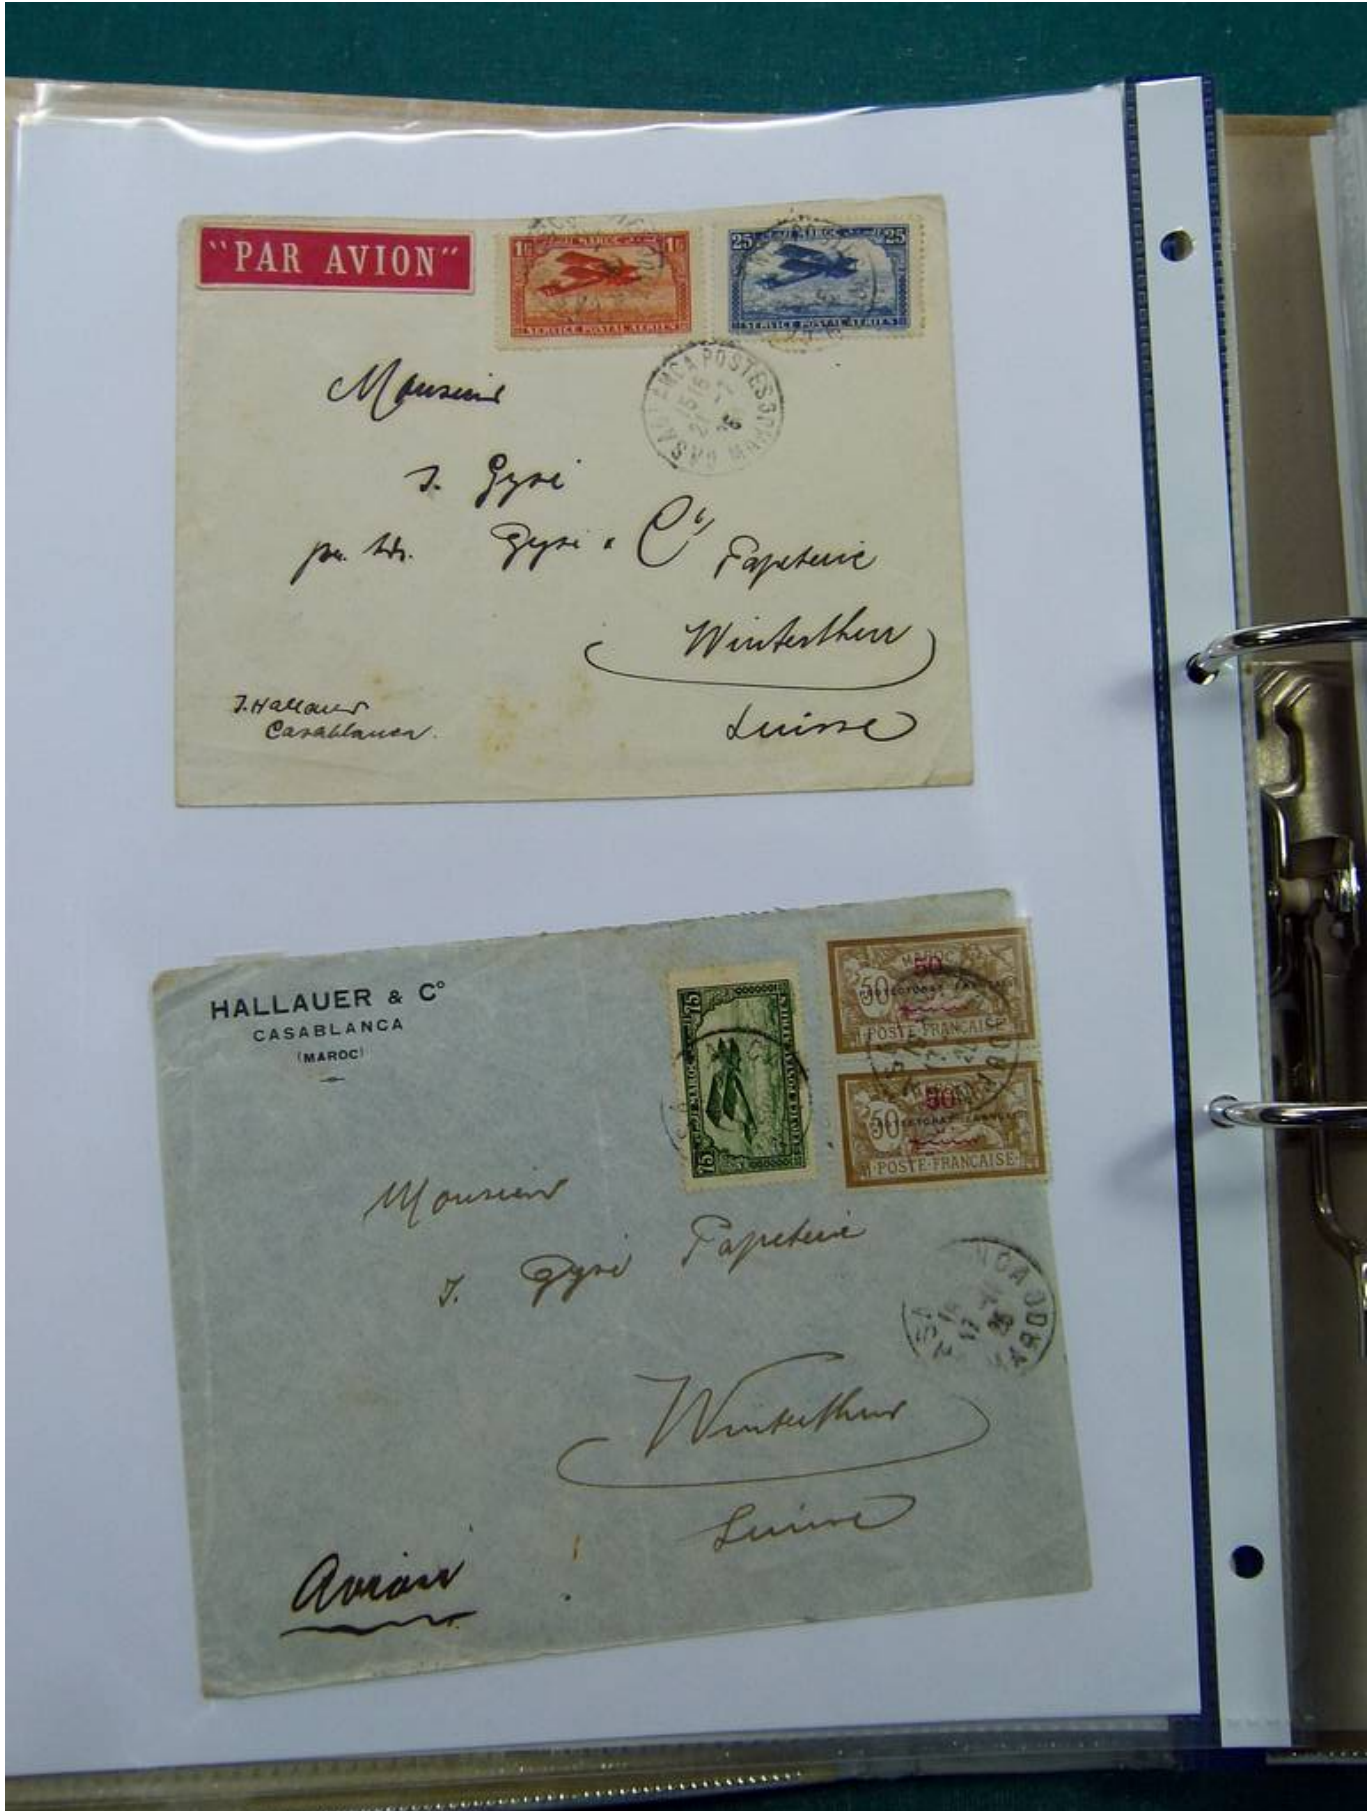 "PAR AVION"
1F MAROC 1F
SERVICE POSTAL AERIEN
25 MAROC 25
SERVICE POSTAL AERIEN
CASABLANCA POSTES MAROC
Monsieur
J. Gysi
Gysi & Cie Papeterie
Winterthur
Suisse
J. Hallauer
Casablanca.
HALLAUER & Co
CASABLANCA
(MAROC)
75 MAROC 75
SERVICE POSTAL AERIEN
MAROC
50
50
PROTECTORAT FRANÇAIS
POSTE FRANÇAISE
50
50
PROTECTORAT FRANÇAIS
POSTE FRANÇAISE
Monsieur
J. Gysi Papeterie
Winterthur
Suisse
Avion